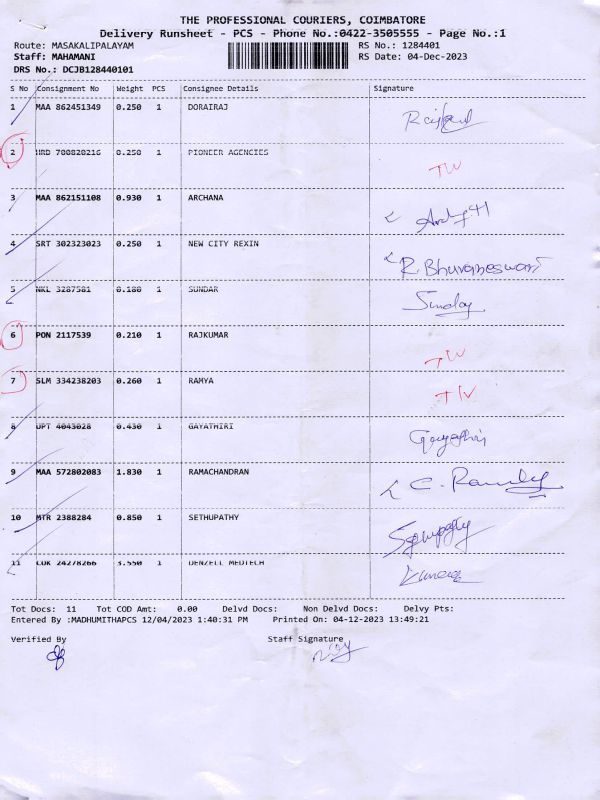 THE PROFESSIONAL COURIERS, COIMBATORE
Delivery Runsheet - PCS - Phone No.:0422-3505555 - Page No.:1
Route: MASAKALIPALAYAM RS No.: 1284401
Staff: MAHAMANI RS Date: 04-Dec-2023
DRS No.: DCJB128440101
S No Consignment No Weight PCS Consignee Details Signature
1 MAA 862451349 0.250 1 DORAIRAJ
2 HRD 700820216 0.250 1 PIONEER AGENCIES
3 MAA 862151108 0.930 1 ARCHANA
4 SRT 302323023 0.250 1 NEW CITY REXIN R. Bhuvaneswari
5 NKL 3287581 0.180 1 SUNDAR
6 PON 2117539 0.210 1 RAJKUMAR
7 SLM 334238203 0.260 1 RAMYA
8 UPT 4043028 0.430 1 GAYATHIRI
9 MAA 572802083 1.830 1 RAMACHANDRAN
10 MTR 2388284 0.850 1 SETHUPATHY
11 COK 24278266 3.550 1 DENZELL MEDTECH
Tot Docs: 11 Tot COD Amt: 0.00 Delvd Docs: Non Delvd Docs: Delvy Pts:
Entered By :MADHUMITHAPCS 12/04/2023 1:40:31 PM Printed On: 04-12-2023 13:49:21
Verified By Staff Signature